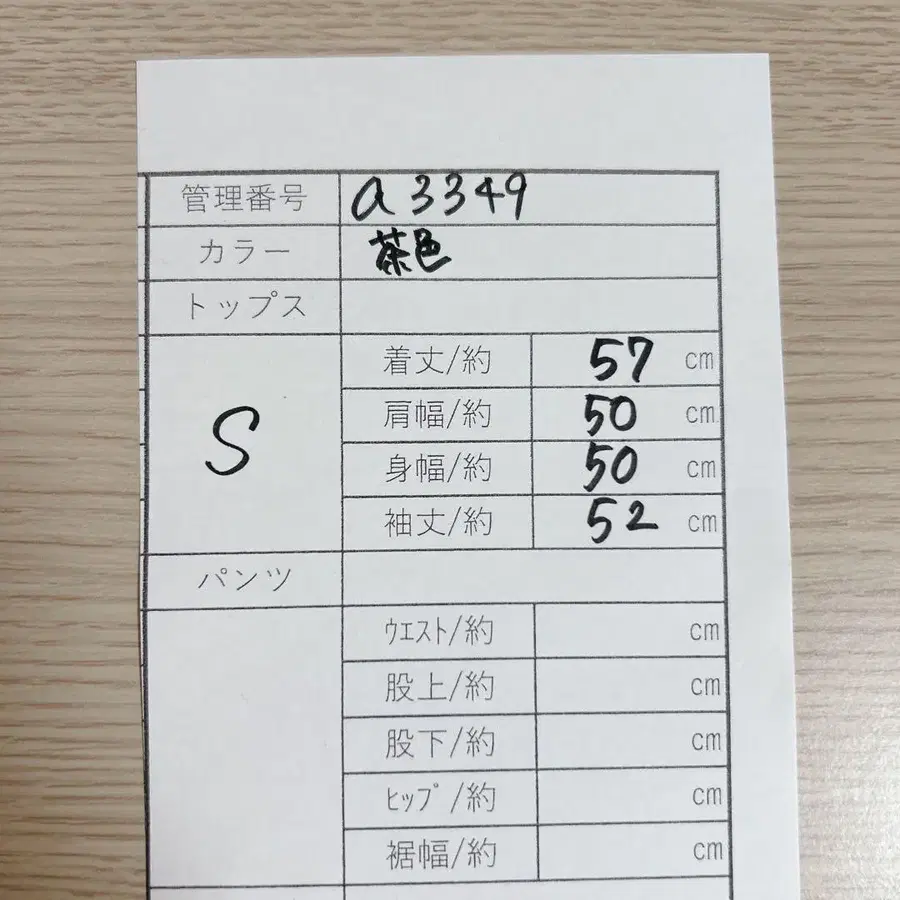 管理番号 a3349
カラー 茶色
トップス
S
着丈/約 57 cm
肩幅/約 50 cm
身幅/約 50 cm
袖丈/約 52 cm
パンツ
ｳｴｽﾄ/約 cm
股上/約 cm
股下/約 cm
ﾋｯﾌﾟ/約 cm
裾幅/約 cm